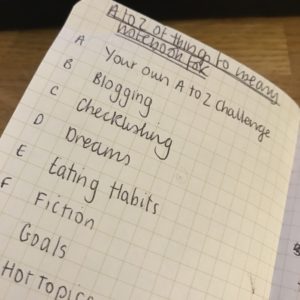 A to Z of things to use any
notebook for
A Your own A to Z challenge
B Blogging
C Checklisting
D Dreams
E Eating Habits
F Fiction
Goals
Hot Topics